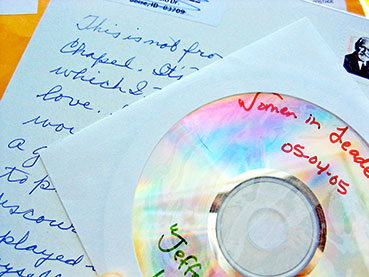 Boise, ID 83709
This is not fro
Chapel. Its
which I
love.
wou
a g
to p
discour
played-
Women in Leade
05-04-05
Jeff